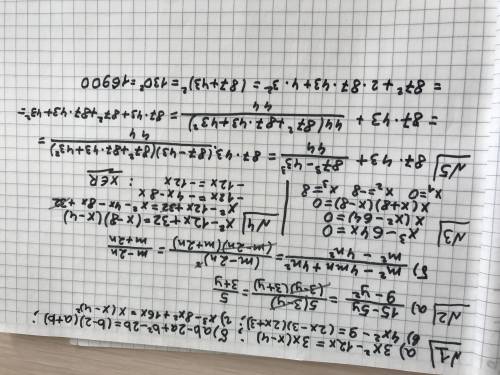 √1 а) 3x² - 12x = 3x(x-4) ; б) ab - 2a + b² - 2b = (b-2)(a+b) ;
в) 4x² - 9 = (2x-3)(2x+3) ; г) x³ - 8x² + 16x = x(x-4)²
√2 а) 15-5y / 9-y² = 5(3-y) / (3-y)(3+y) = 5 / 3+y
б) m² - 4mn + 4n² / m² - 4n² = (m-2n)² / (m-2n)(m+2n) = m-2n / m+2n
√3 x³ - 64x = 0
x(x² - 64) = 0
x(x+8)(x-8) = 0
x₁=0 x₂=-8 x₃=8
√4 x² - 12x + 32 = (x-8)(x-4)
x² - 12x + 32 = x² - 4x - 8x + 32
-12x = -4x - 8x
-12x = -12x ; ХЕR
√5 87·43 + 87³ - 43³ / 44 = 87·43 + (87-43)(87²+87·43+43²) / 44 =
= 87·43 + 44(87²+87·43+43²) / 44 = 87·43+87²+87·43+43² =
= 87² + 2·87·43 + 43² = (87+43)² = 130² = 16900